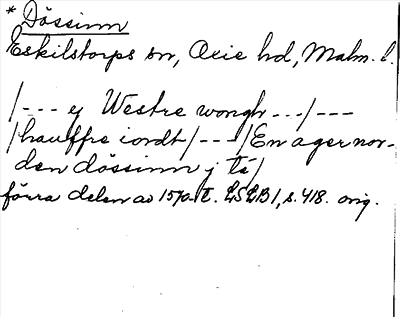 * Dössinn
Eskilstorps sn, Oxie hd, Malm. l.
/--- ej Westre wongh ---/---
/hauffre iordt/---/En ager nor-
den dössinn j té/
förra delen av 1570-t. LSLB 1, s. 418. orig.